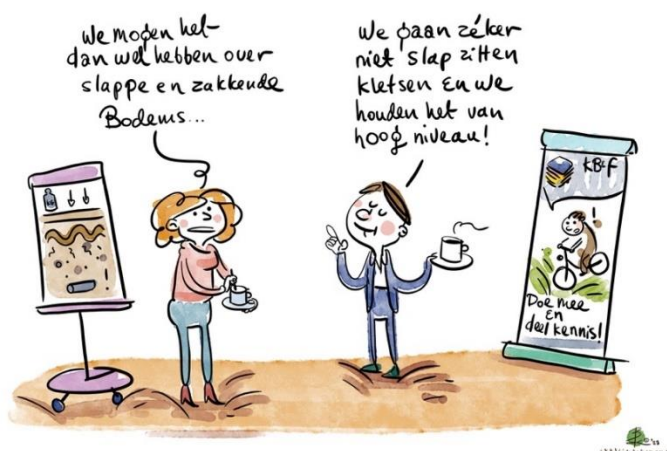 We mogen het
dan wel hebben over
slappe en zakkende
Bodems...
We gaan zéker
niet slap zitten
kletsen en we
houden het van
hoog niveau!
KB&F
Doe mee
en
deel kennis!